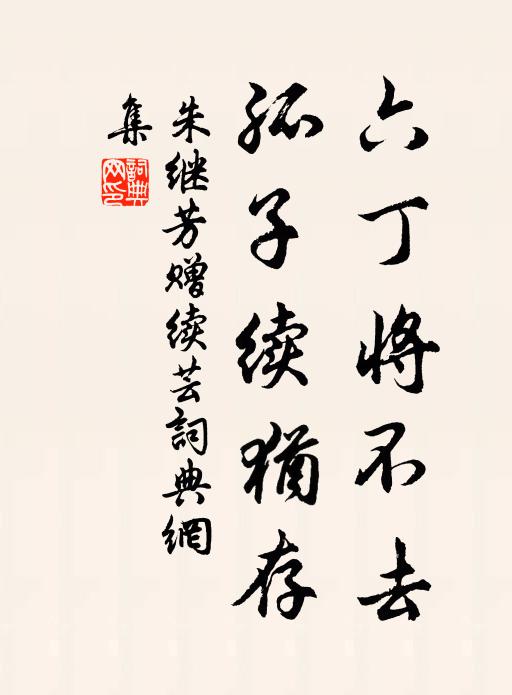 六丁将不去
孤子续犹存
朱继芳赠续芸詞典網
集
詞典网印